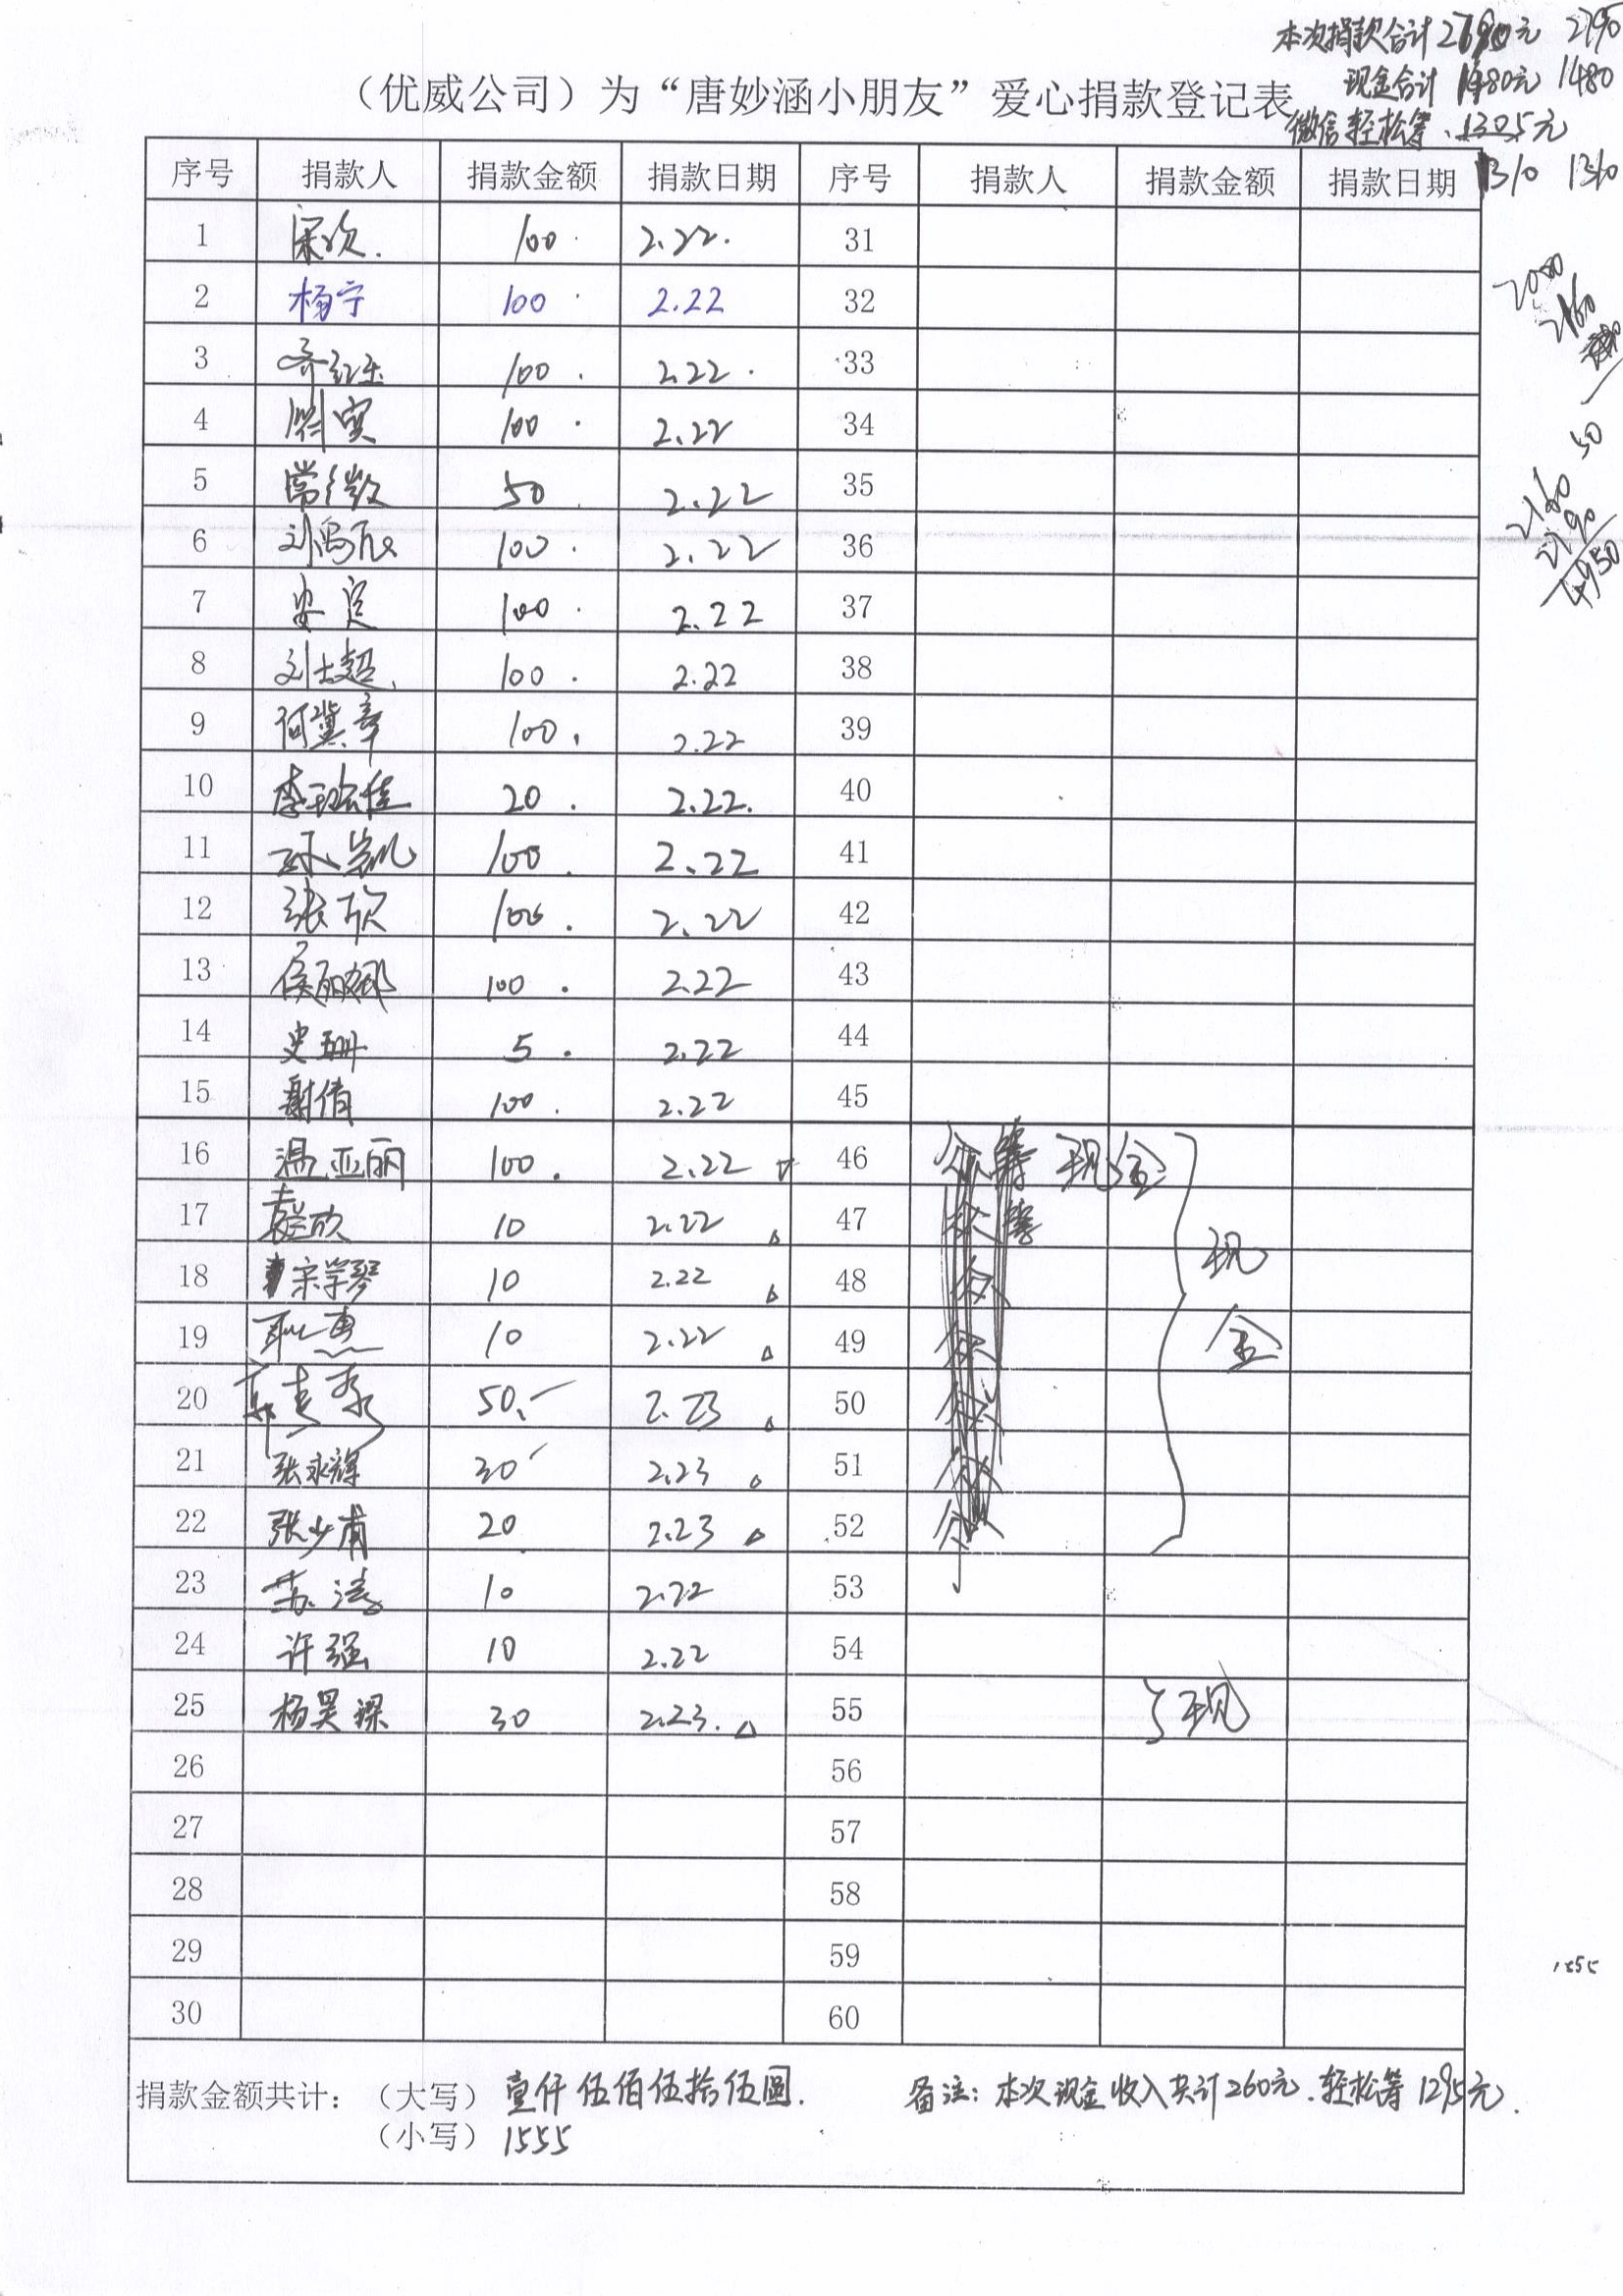 本次捐款合计2790元 2790
现金合计 1480元 1480
(优威公司)为“唐妙涵小朋友”爱心捐款登记表
微信轻松筹 1305元
1310 1310
序号 捐款人 捐款金额 捐款日期 序号 捐款人 捐款金额 捐款日期
1 100 2.22. 31
2 杨宁 100 2.22 32
3 100 2.22 33
4 100 2.22 34
5 常微 50 2.22 35
6 100 2.22 36
7 安定 100 2.22 37
8 刘士超 100 2.22 38
9 何冀章 100 2.22 39
10 李瑞佳 20 2.22. 40
11 孙凯 100 2.22 41
12 张欣 100 2.22 42
13 侯丽娜 100 2.22 43
14 史珊 5 2.22 44
15 谢倩 100 2.22 45
16 温亚丽 100 2.22 46 现金
17 10 2.22 47
18 宋学琴 10 2.22 48 现
19 耿惠 10 2.22 49 金
20 50 2.23 50
21 张永辉 30 2.23 51
22 张少甫 20 2.23 52
23 苏涛 10 2.22 53
24 许强 10 2.22 54
25 杨昊 30 2.23. 55 现
26 56
27 57
28 58
29 59
30 60
2000
2160
50
2160
2790
4950
1555
捐款金额共计:(大写)壹仟伍佰伍拾伍圆. 备注:本次现金收入共计260元.轻松筹1295元.
(小写)1555